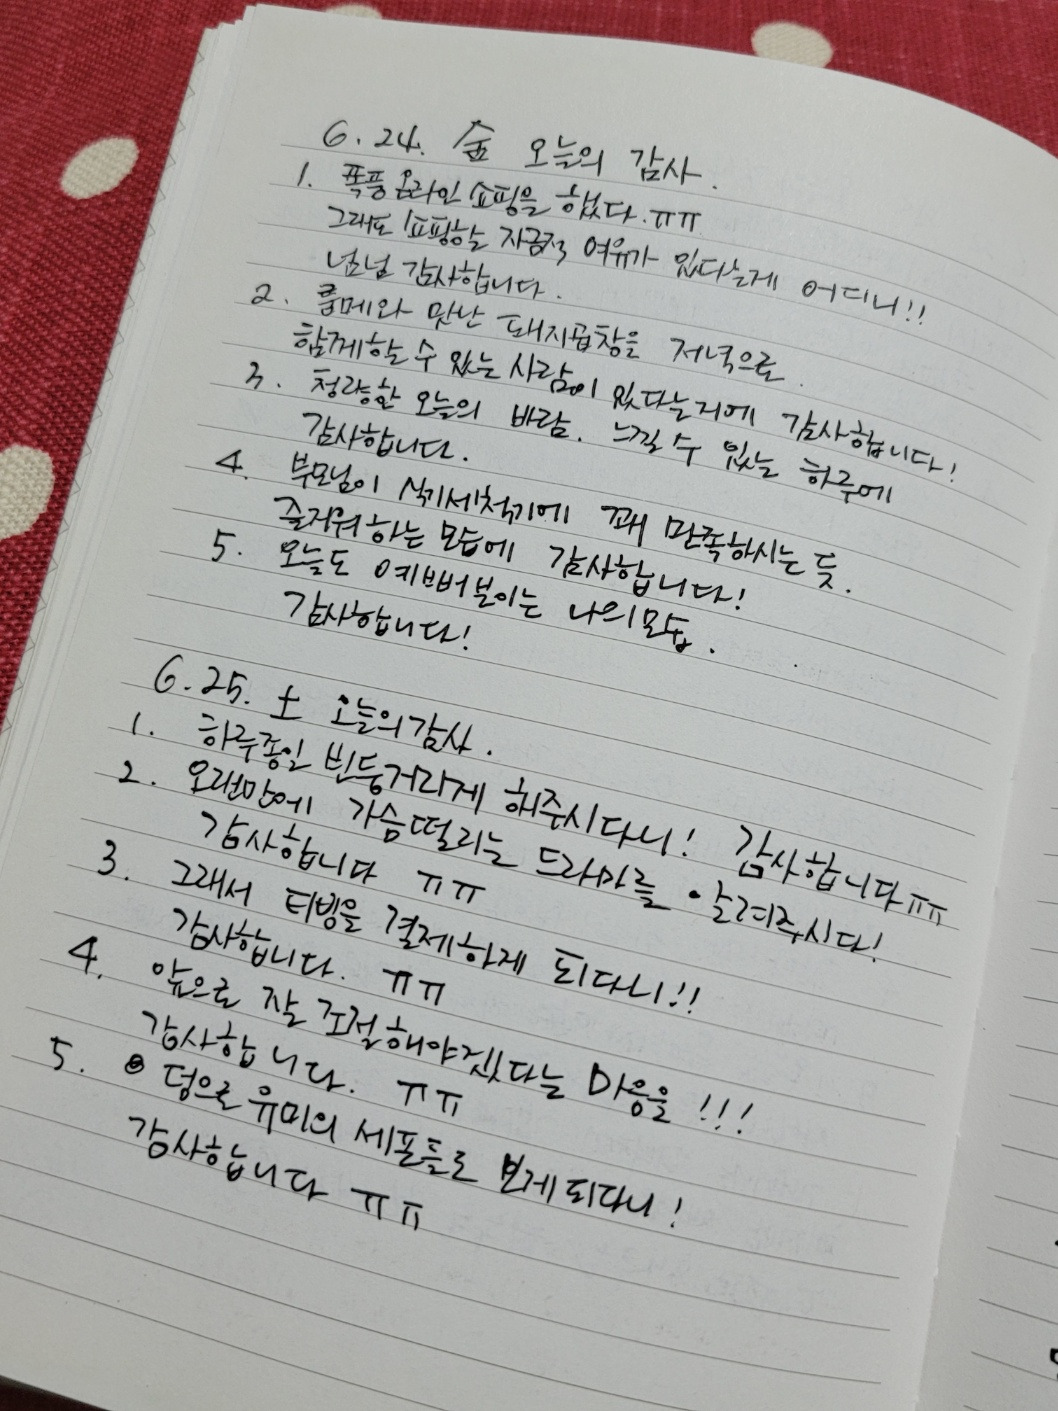 6.24. 金 오늘의 감사.
1. 폭풍 온라인 쇼핑을 했다.ㅠㅠ
그래도 쇼핑할 자금적 여유가 있다는게 어디니!!
넘넘 감사합니다.
2. 룸메와 맛난 돼지곱창을 저녁으로.
함께할 수 있는 사람이 있다는거에 감사합니다!
3. 청량한 오늘의 바람. 느낄 수 있는 하루에
감사합니다.
4. 부모님이 식기세척기에 꽤 만족하시는 듯.
즐거워하는 모습에 감사합니다!
5. 오늘도 예뻐보이는 나의모습.
감사합니다!
6.25. 土 오늘의감사.
1. 하루종일 빈둥거리게 해주시다니! 감사합니다ㅠㅠ
2. 오랜만에 가슴떨리는 드라마를 알려주시다!
감사합니다 ㅠㅠ
3. 그래서 티빙을 결제하게 되다니!!
감사합니다. ㅠㅠ
4. 앞으로 잘 조절해야겠다는 마음을!!!
감사합니다. ㅠㅠ
5. 덤으로 유미의 세포들도 보게되다니!
감사합니다 ㅠㅠ